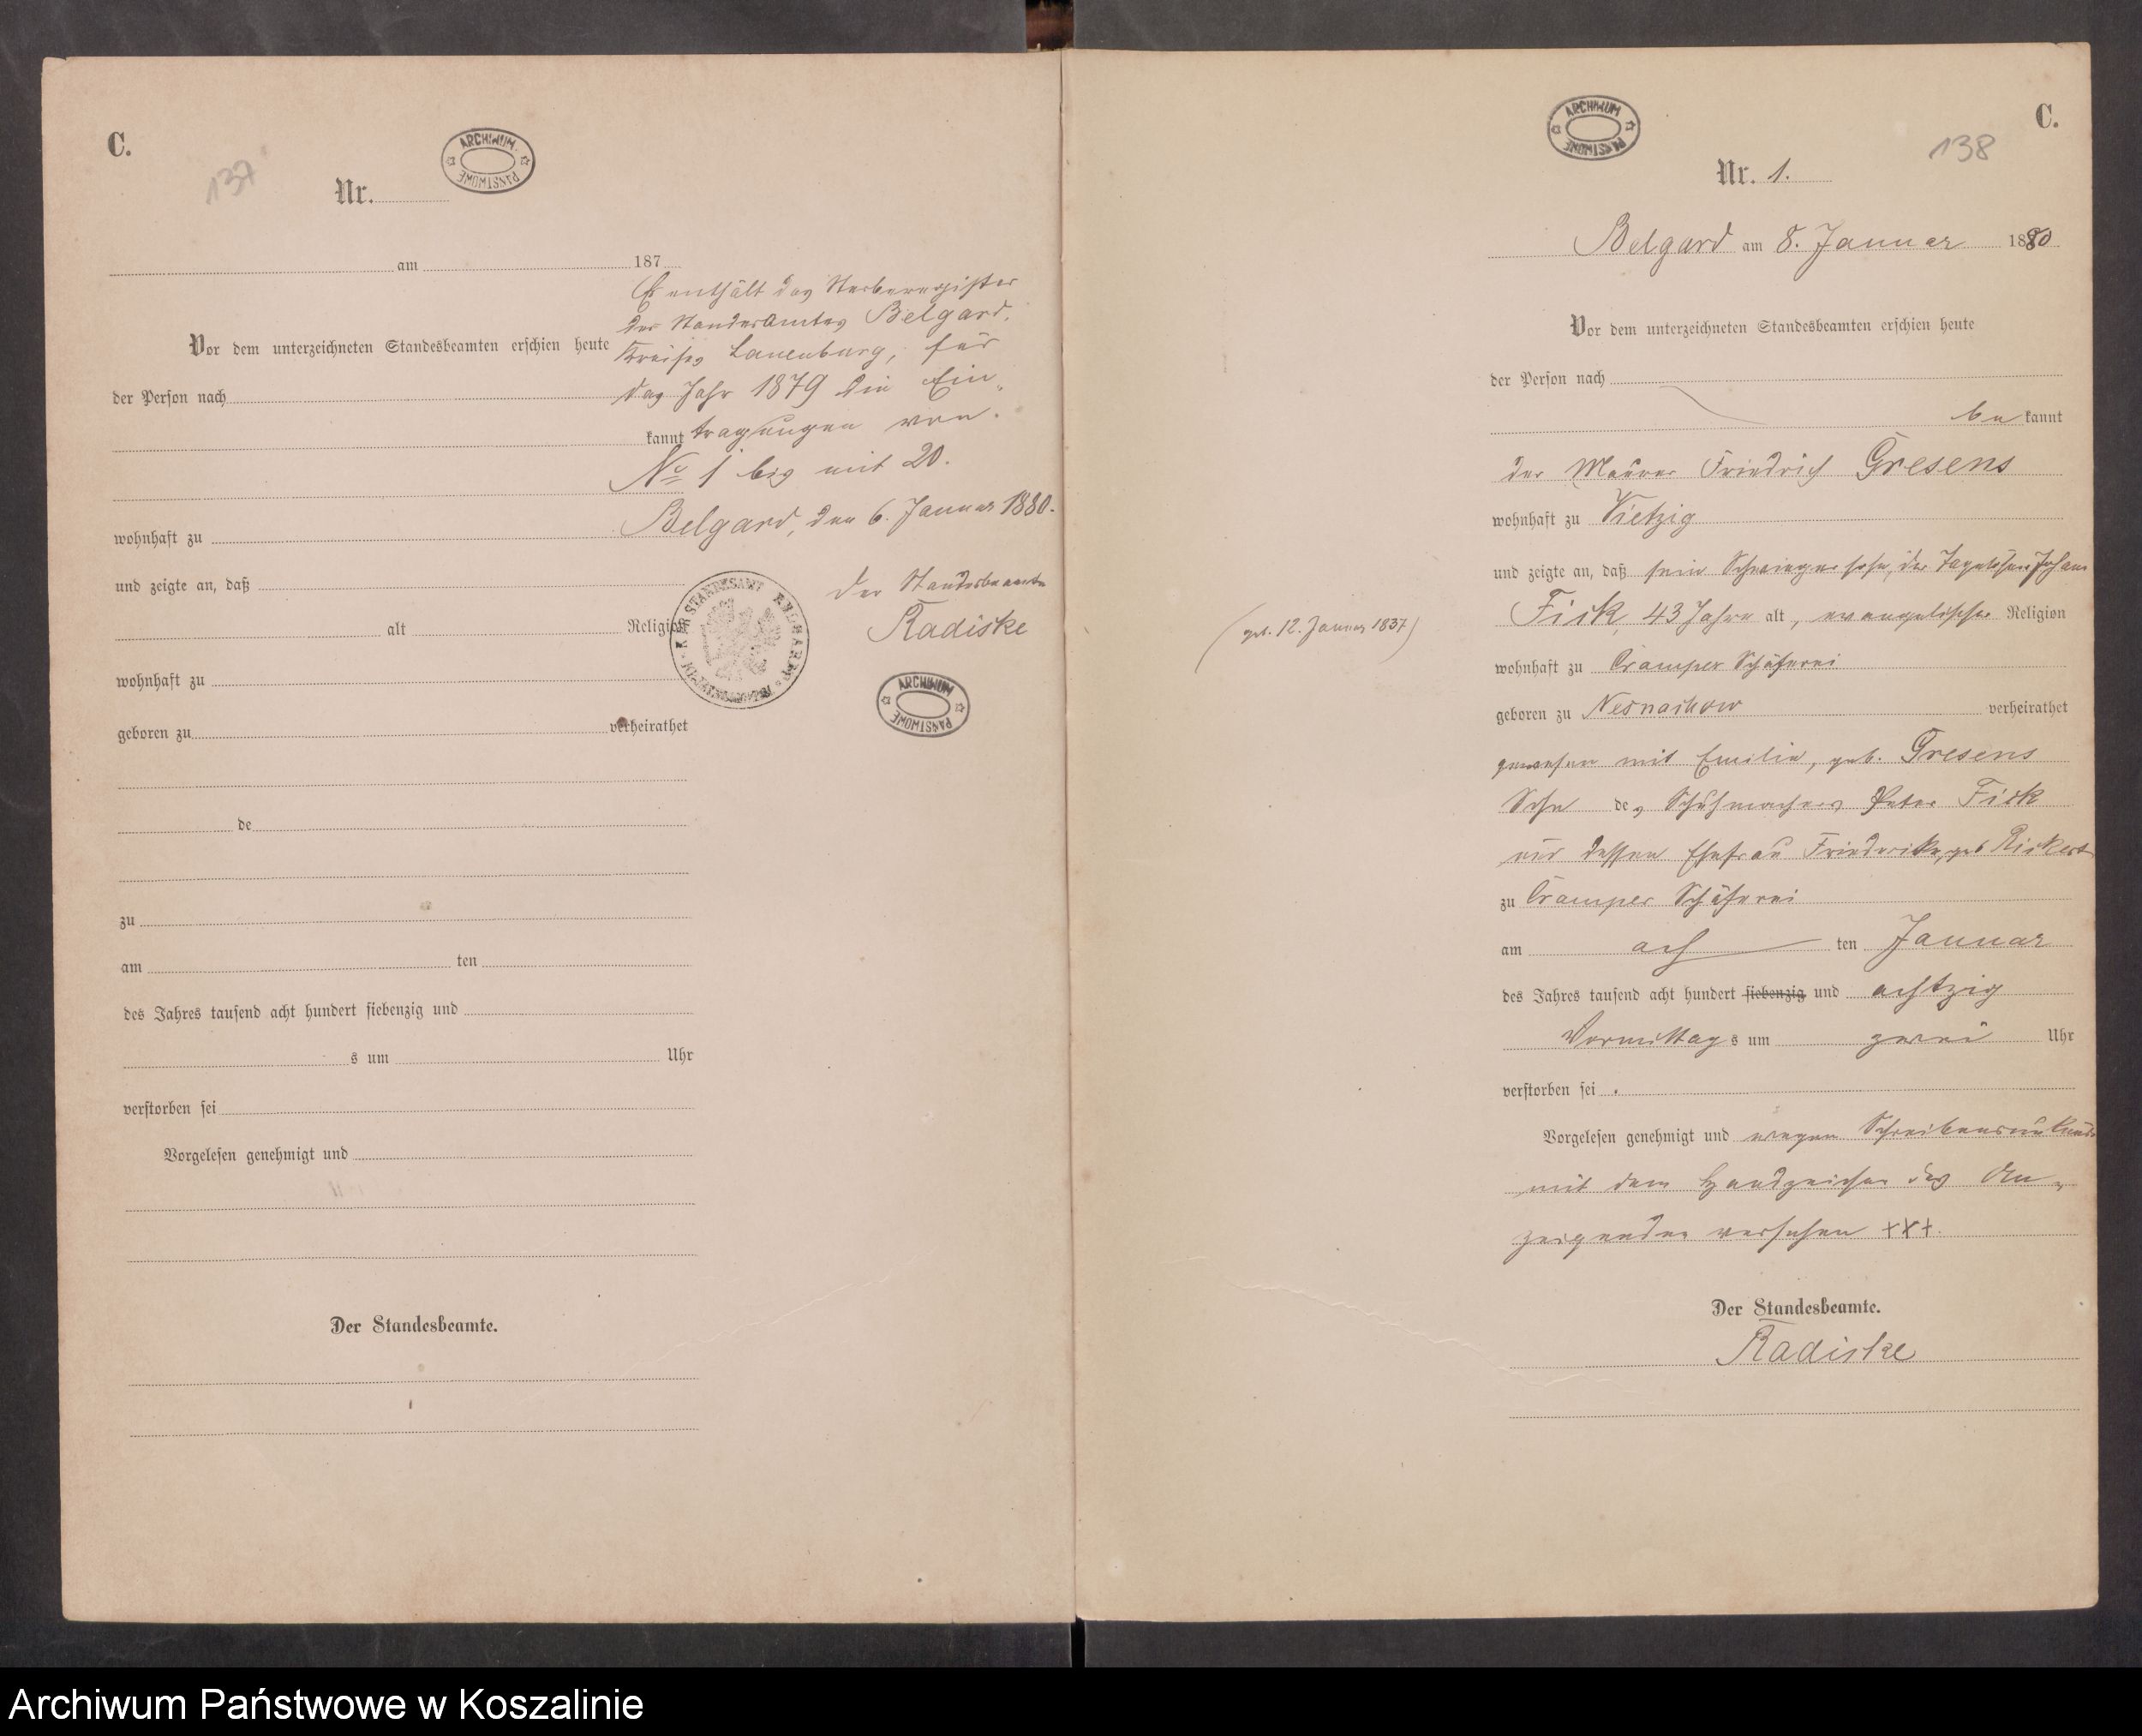 C.
137
Nr.
ARCHIWUM PAŃSTWOWE
am 187
Es enthält das Sterberegister
des Standesamtes Belgard,
Vor dem unterzeichneten Standesbeamten erschien heute
Kreises Lauenburg, für
der Person nach
das Jahr 1879 die Ein-
kannt
tragungen von
No 1 bis mit 20.
Belgard, den 6. Januar 1880.
wohnhaft zu
und zeigte an, daß
Der Standesbeamte
alt Religion
Radiske
wohnhaft zu
ARCHIWUM PAŃSTWOWE
geboren zu verheirathet
de
zu
am ten
des Jahres tausend acht hundert siebenzig und
s um Uhr
verstorben sei
Vorgelesen genehmigt und
Der Standesbeamte.
C.
138
ARCHIWUM PAŃSTWOWE
Nr. 1.
Belgard am 8. Januar 1880
Vor dem unterzeichneten Standesbeamten erschien heute
der Person nach
bekannt
der Maurer Friedrich Gresens
wohnhaft zu Vietzig
und zeigte an, daß sein Schwiegersohn, der Tagelöhner Johann
Fick, 43 Jahre alt, evangelischer Religion
(geb. 12. Januar 1837)
wohnhaft zu Cramper Schäferei
geboren zu Nesnachow verheirathet
gewesen mit Emilie, geb. Gresens
Sohn des Schuhmachers Peter Fick
und dessen Ehefrau Friederike, geb. Rickert
zu Cramper Schäferei
am ach ten Januar
des Jahres tausend acht hundert siebenzig und achtzig
Vormittags um zwei Uhr
verstorben sei.
Vorgelesen genehmigt und wegen Schreibensunkunde
mit dem Handzeichen des An-
zeigenden versehen +++.
Der Standesbeamte.
Radiske
Archiwum Państwowe w Koszalinie